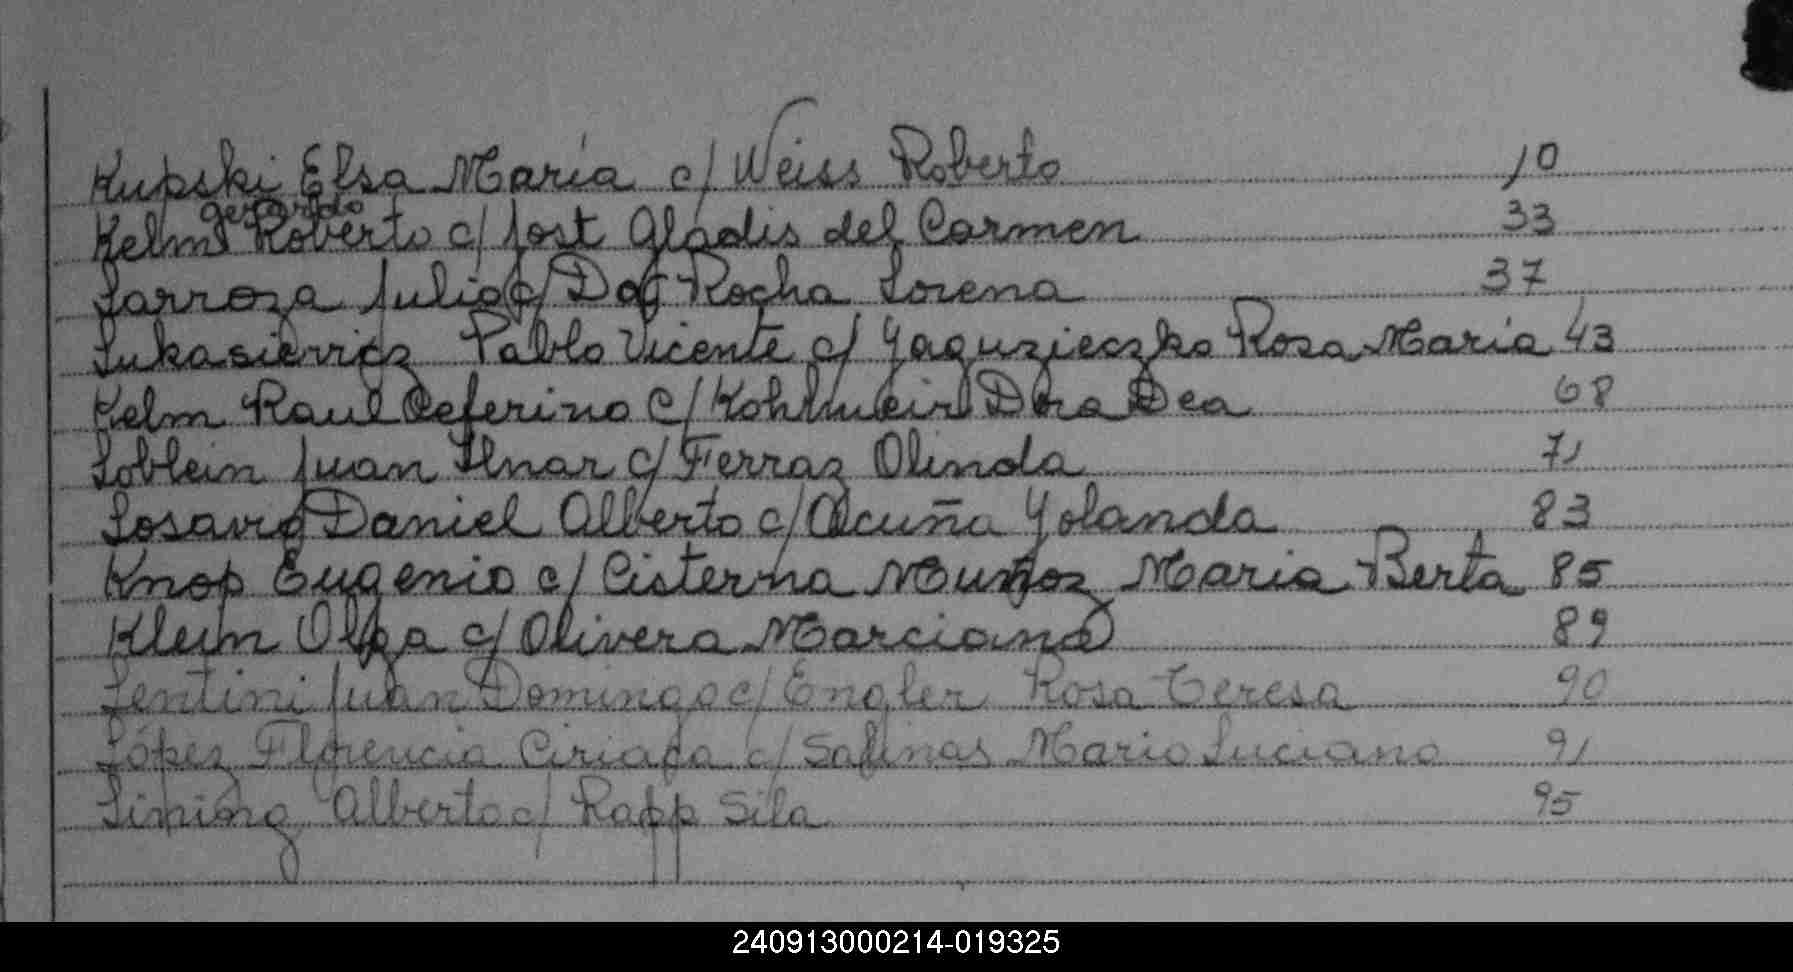 Kupski Elsa María c/ Weiss Roberto 10
gerardo
Kelm Roberto c/ Jost Gladis del Carmen 33
Larroza Julio c/ Da Rocha Lorena 37
Lukasievicz Pablo Vicente c/ Yaguzieczko Rosa María 43
Kelm Raul Ceferino c/ Kohlmeir Dora Dea 68
Loblein Juan Ilnar c/ Ferraz Olinda 71
Daniel Alberto c/ Acuña Yolanda 83
Knop Eugenio c/ Cisterna Muñoz Maria Berta 85
Klein Olga c/ Olivera Marciano 89
Lentini Juan Domingo c/ Engler Rosa Teresa 90
López Florencia Ciriaca c/ Salinas Mario Luciano 91
Alberto c/ Rapp Sila 95
240913000214-019325